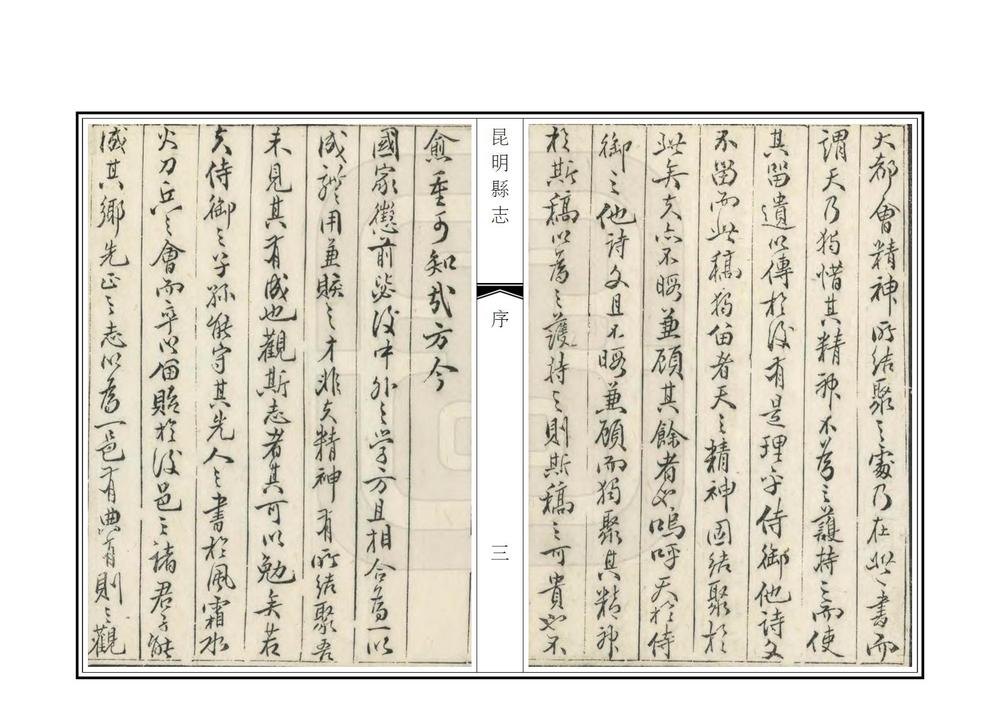 大都會精神所結聚之處乃在此一書而
謂天乃獨惜其精神不為之護持之而使
其留遺以傳於後有是理乎侍御他詩文
不留而此稿獨留者天之精神固結聚於
此矣夫亦不暇兼顧其餘者也嗚呼天於侍
御之他詩文且不暇兼顧而獨聚其精神
於斯稿以為之護持之則斯稿之可貴也不
昆明縣志
序
三
愈重可知哉方今
國家懲前毖後中外之學方且相合為一以
成於用兼賅之才非夫精神有所結聚吾
未見其有成也觀斯志者其可以勉矣若
夫侍御之子孫能守其先人之書於風霜水
火刀兵之會而卒以留貽於後邑之諸君子能
成其鄉先正之志以為一邑有典有則之觀